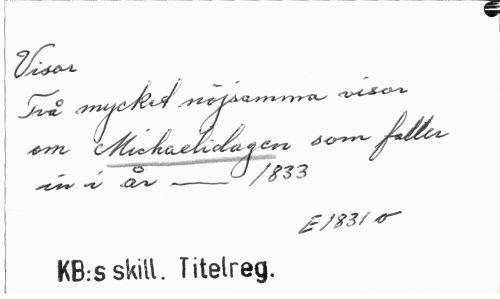 Visor
Två mycket nöjsamma visor
om Michaelidagen som faller
in i år —— 1833
E 1831 o
KB:s skill. Titelreg.